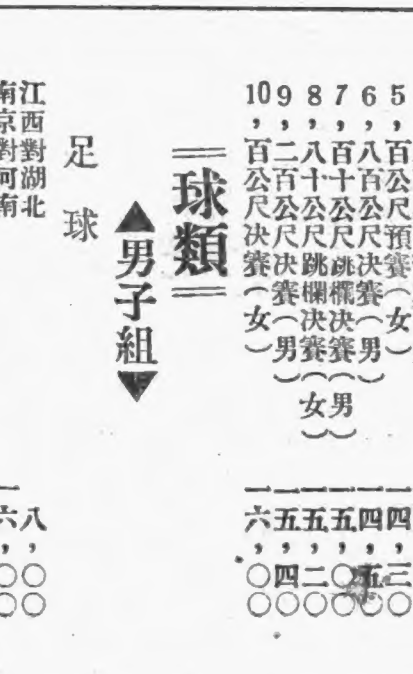 5，百公尺預賽（女） 一四，三○
6，八百公尺决賽（男） 一四，五○
7，百十公尺跳欄决賽（男） 一五，○○
8，八十公尺跳欄决賽（女） 一五，二○
9，二百公尺决賽（男） 一五，四○
10，百公尺决賽（女） 一六，○○
球類
▲男子組▼
足球
江西對湖北 八，○○
南京對河南 一六，○○